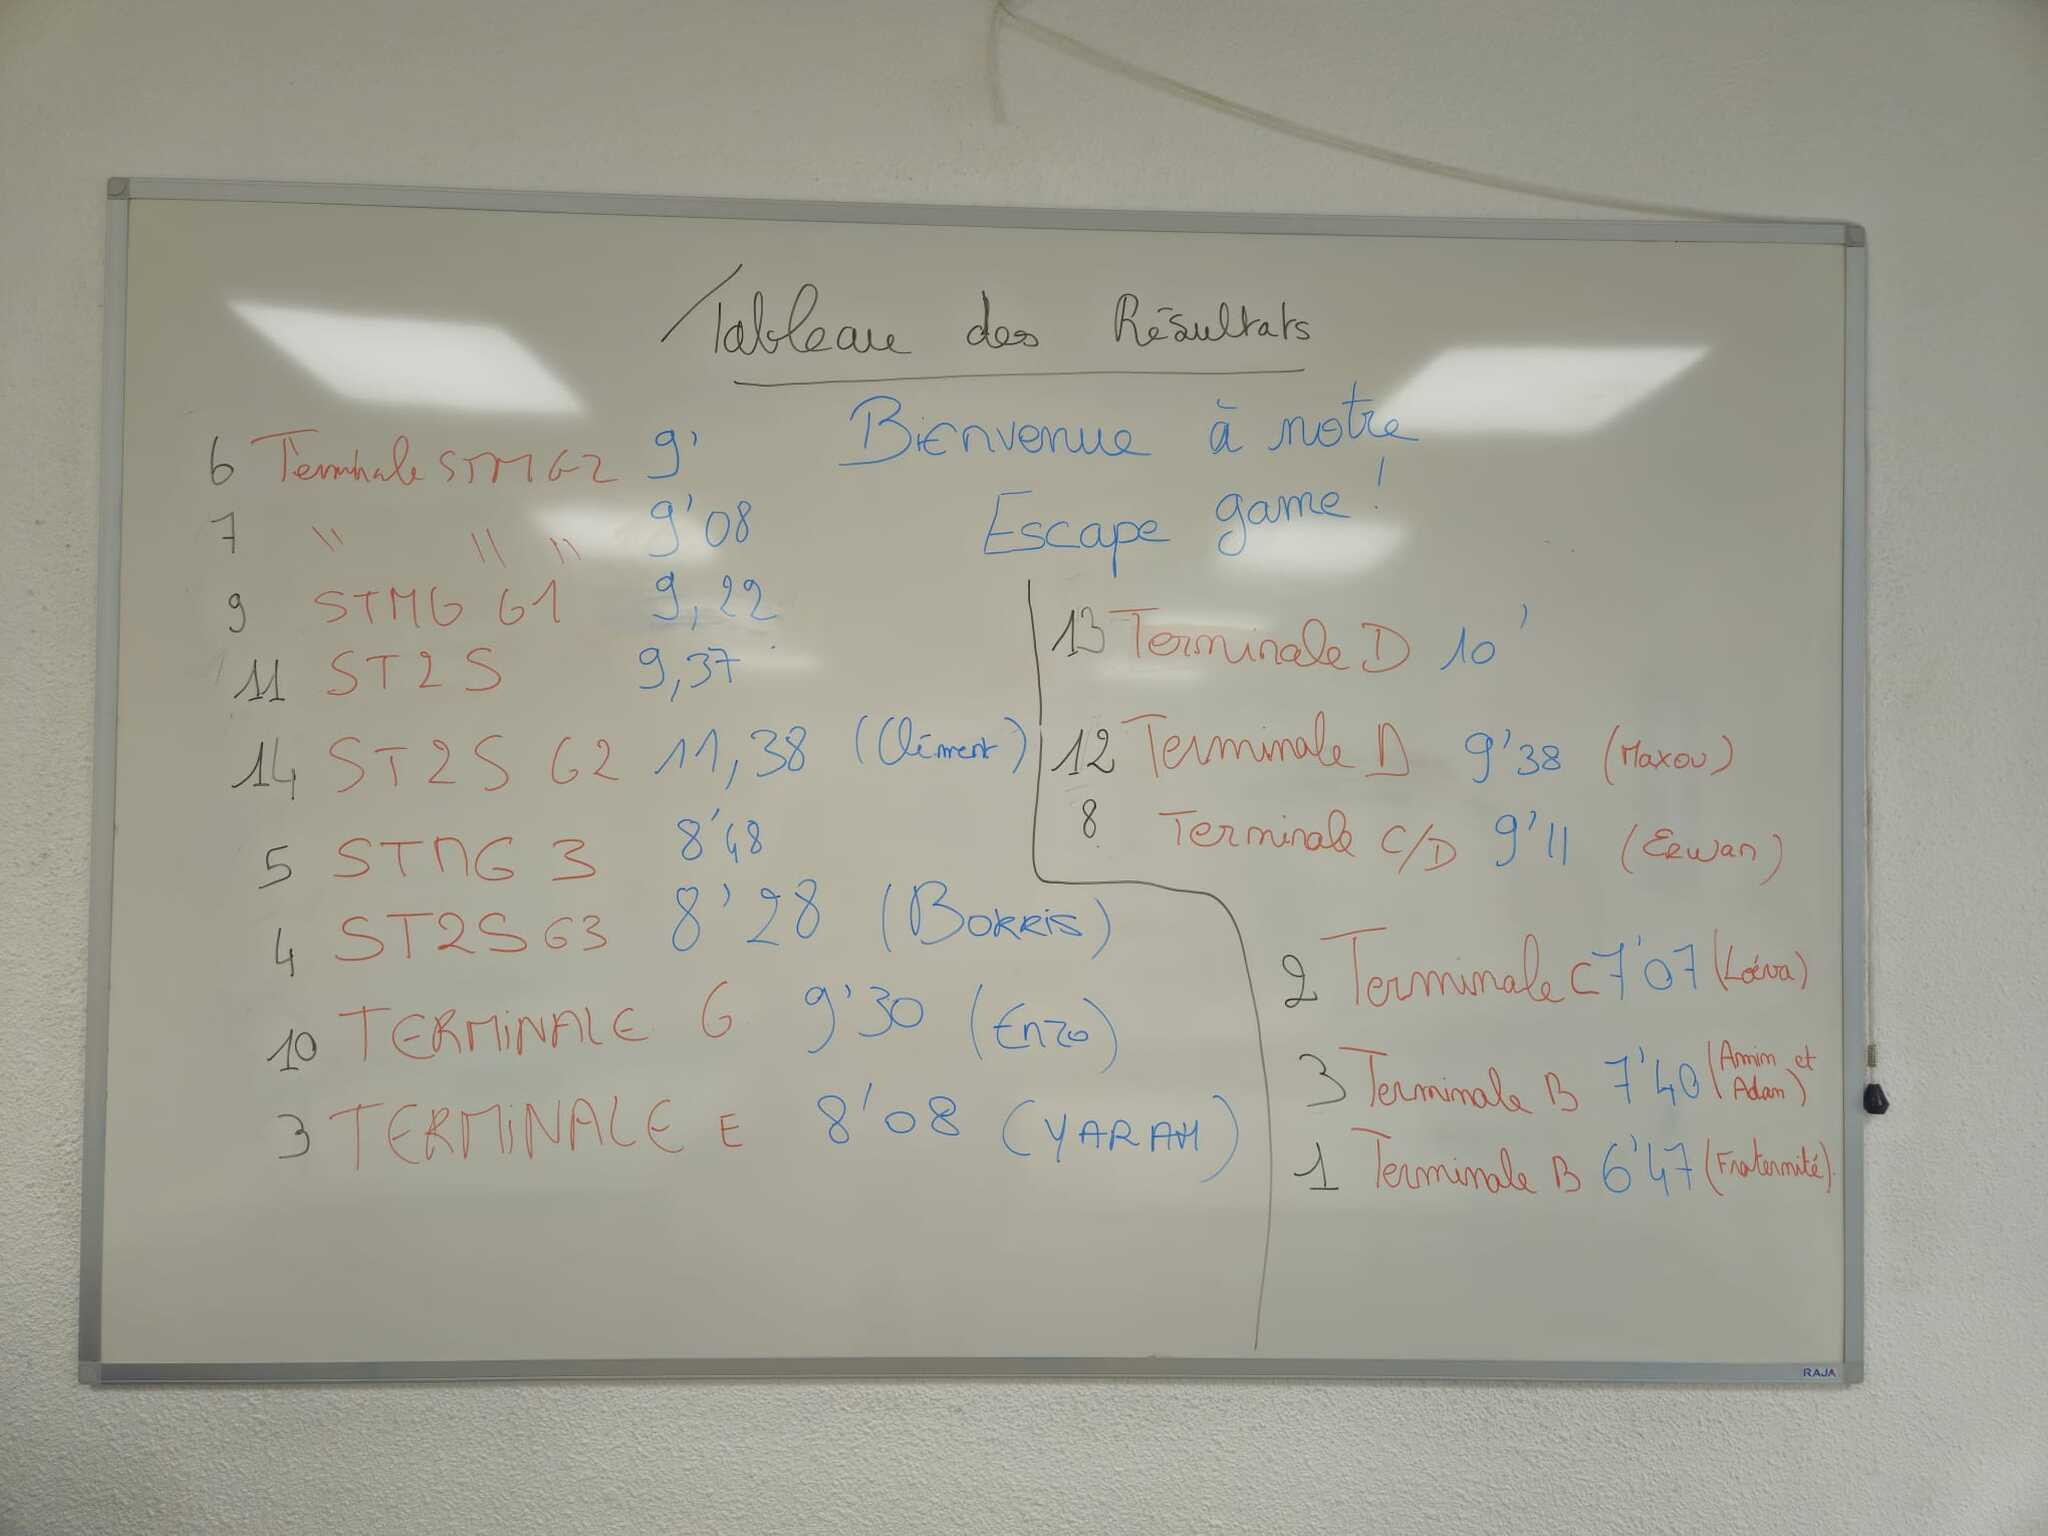 Tableau des Résultats
Bienvenue à notre
Escape game !
6 Terminale STMG2 9'
7 " " " 9'08
9 STMG G1 9,22
11 ST2S 9,37
14 ST2S G2 11,38 (Clément)
5 STMG 3 8'48
4 ST2S G3 8'28 (BORRIS)
10 TERMINALE G 9'30 (Enzo)
3 TERMINALE E 8'08 (YARAH)
13 Terminale D 10'
12 Terminale D 9'38 (Maxou)
8 Terminale C/D 9'11 (Erwan)
2 Terminale C 7'07 (Loéva)
3 Terminale B 7'40 (Amim et
Adam)
1 Terminale B 6'47 (Fraternité).
RAJA